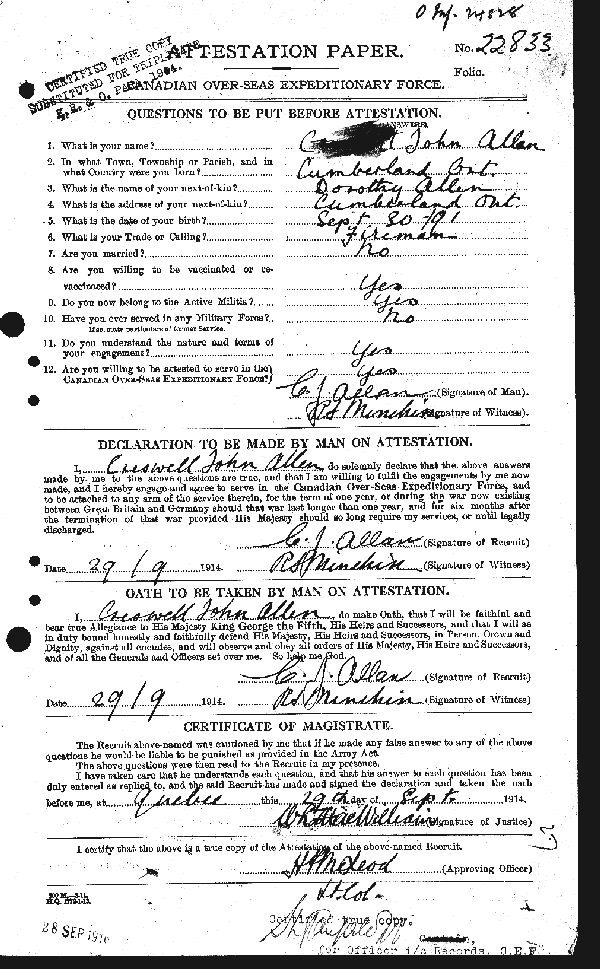 O Inf. 24828
ATTESTATION PAPER.
No. 22833
Folio.
CERTIFIED TRUE COPY
SUBSTITUTED FOR TRIPLICATE
CANADIAN OVER-SEAS EXPEDITIONARY FORCE.
QUESTIONS TO BE PUT BEFORE ATTESTATION.
(ANSWERS)
1. What is your name? John Allan
2. In what Town, Township or Parish, and in
what Country were you born? Cumberland Ont.
3. What is the name of your next-of-kin? Dorothy Allen
4. What is the address of your next-of-kin? Cumberland Ont
5. What is the date of your birth? Sept 30/91
6. What is your Trade or Calling? Fireman
7. Are you married? No
8. Are you willing to be vaccinated or re-
vaccinated? Yes
9. Do you now belong to the Active Militia? Yes
10. Have you ever served in any Military Force? No
If so, state particulars of former Service.
11. Do you understand the nature and terms of
your engagement? Yes
12. Are you willing to be attested to serve in the Yes
CANADIAN OVER-SEAS EXPEDITIONARY FORCE?
C. J. Allan (Signature of Man).
R S Minchin (Signature of Witness).
DECLARATION TO BE MADE BY MAN ON ATTESTATION.
I, Creswell John Allen, do solemnly declare that the above answers
made by me to the above questions are true, and that I am willing to fulfil the engagements by me now
made, and I hereby engage and agree to serve in the Canadian Over-Seas Expeditionary Force, and
to be attached to any arm of the service therein, for the term of one year, or during the war now existing
between Great Britain and Germany should that war last longer than one year, and for six months after
the termination of that war provided His Majesty should so long require my services, or until legally
discharged.
C. J. Allan (Signature of Recruit)
Date 29/9 1914. R S Minchin (Signature of Witness)
OATH TO BE TAKEN BY MAN ON ATTESTATION.
I, Creswell John Allen, do make Oath, that I will be faithful and
bear true Allegiance to His Majesty King George the Fifth, His Heirs and Successors, and that I will as
in duty bound honestly and faithfully defend His Majesty, His Heirs and Successors, in Person, Crown and
Dignity, against all enemies, and will observe and obey all orders of His Majesty, His Heirs and Successors,
and of all the Generals and Officers set over me. So help me God.
C. J. Allan (Signature of Recruit)
Date 29/9 1914. R S Minchin (Signature of Witness)
CERTIFICATE OF MAGISTRATE.
The Recruit above-named was cautioned by me that if he made any false answer to any of the above
questions he would be liable to be punished as provided in the Army Act.
The above questions were then read to the Recruit in my presence.
I have taken care that he understands each question, and that his answer to each question has been
duly entered as replied to, and the said Recruit has made and signed the declaration and taken the oath
before me, at Quebec this 29th day of Sept. 1914.
MacWilliam (Signature of Justice)
I certify that the above is a true copy of the Attestation of the above-named Recruit.
H McLeod (Approving Officer)
Lt Col.
Certified true copy.
28 SEP 1916
for Officer i/c Records, C.E.F.